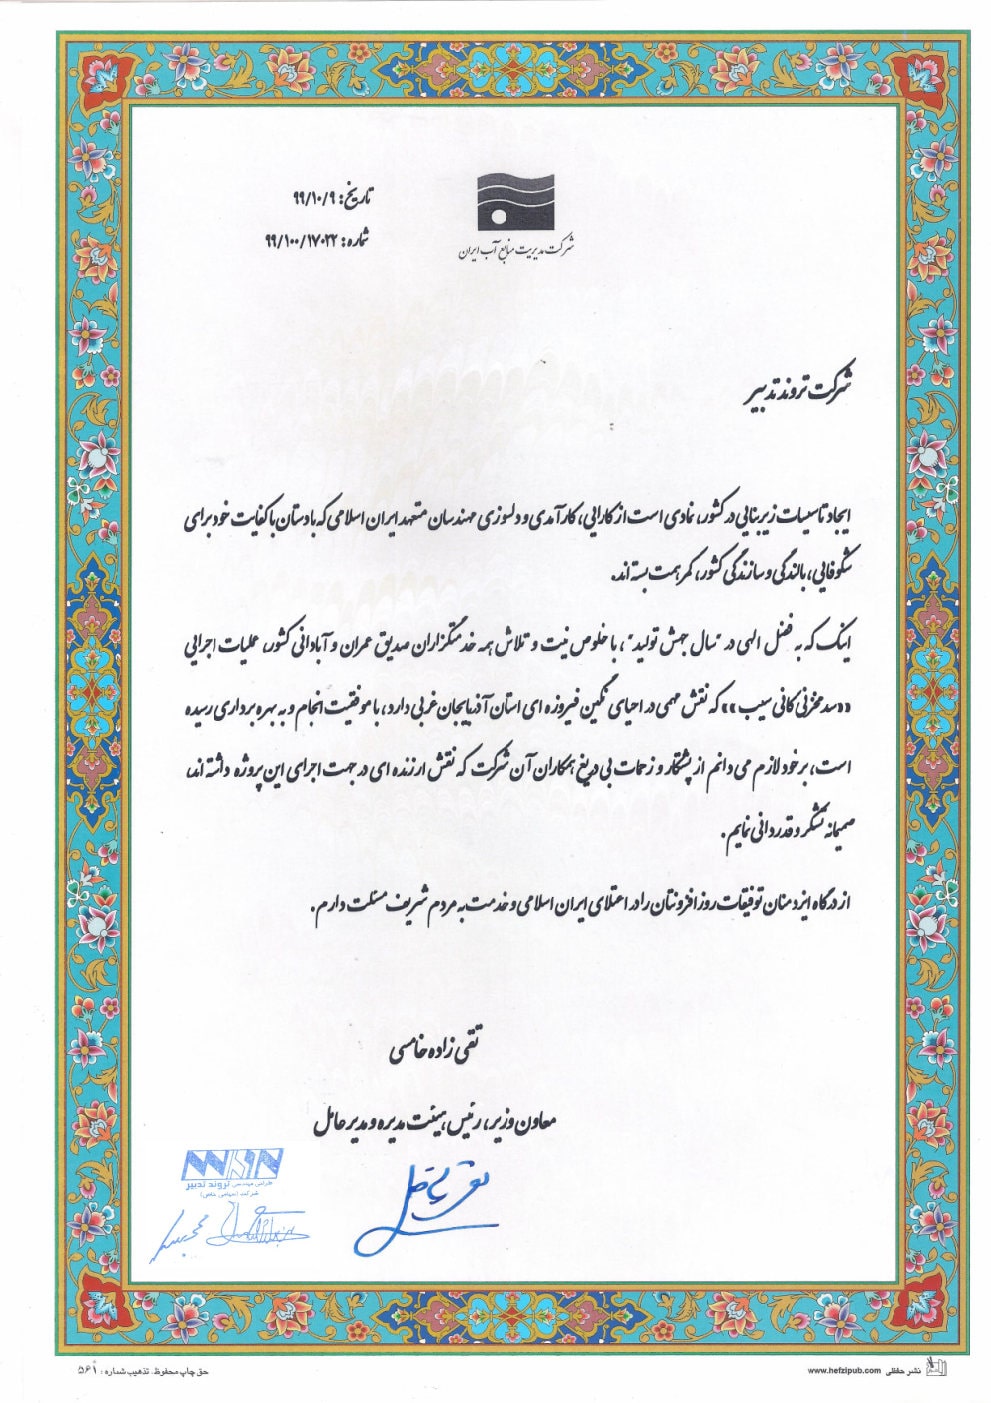 تاریخ: ۹۹/۱۰/۹
شماره: ۹۹/۱۰۰/۱۷۰۲۲
شرکت مدیریت منابع آب ایران
شرکت تروند تدبیر
ایجاد تاسیسات زیربنایی در کشور، نمادی است از کارایی، کارآمدی و دلسوزی مهندسان متعهد ایران اسلامی که با دستان با کفایت خود برای
شکوفایی، بالندگی و سازندگی کشور، کمر همت بسته اند.
اینک که به فضل الهی در "سال جهش تولید"، با خلوص نیت و تلاش همه خدمتگزاران صدیق عمران و آبادانی کشور، عملیات اجرایی
«سد مخزنی کانی سیب» که نقش مهمی در احیای نگین فیروزه ای استان آذربایجان غربی دارد، با موفقیت انجام و به بهره برداری رسیده
است، بر خود لازم می دانم از پشتکار و زحمات بی دریغ همکاران آن شرکت که نقش ارزنده ای در جهت اجرای این پروژه داشته اند،
صمیمانه تشکر و قدردانی نمایم.
از درگاه ایزد منان توفیقات روزافزونتان را در اعتلای ایران اسلامی و خدمت به مردم شریف مسئلت دارم.
تقی زاده خامسی
معاون وزیر، رئیس هیئت مدیره و مدیر عامل
تروند تدبیر
شرکت (سهامی خاص)
حق چاپ محفوظ. تذهیب شماره: ۵۶۱
نشر حفظی www.hefzipub.com